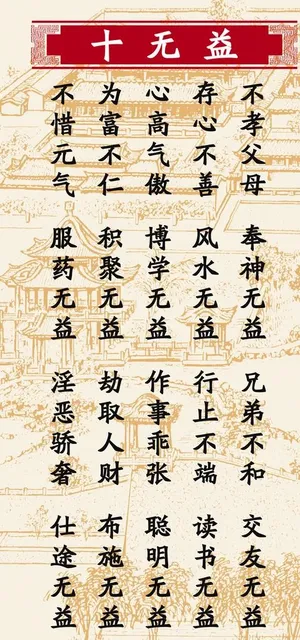 十无益
不孝父母
奉神无益
兄弟不和
交友无益
存心不善
风水无益
行止不端
读书无益
心高气傲
博学无益
作事乖张
聪明无益
为富不仁
积聚无益
劫取人财
布施无益
不惜元气
服药无益
淫恶骄奢
仕途无益